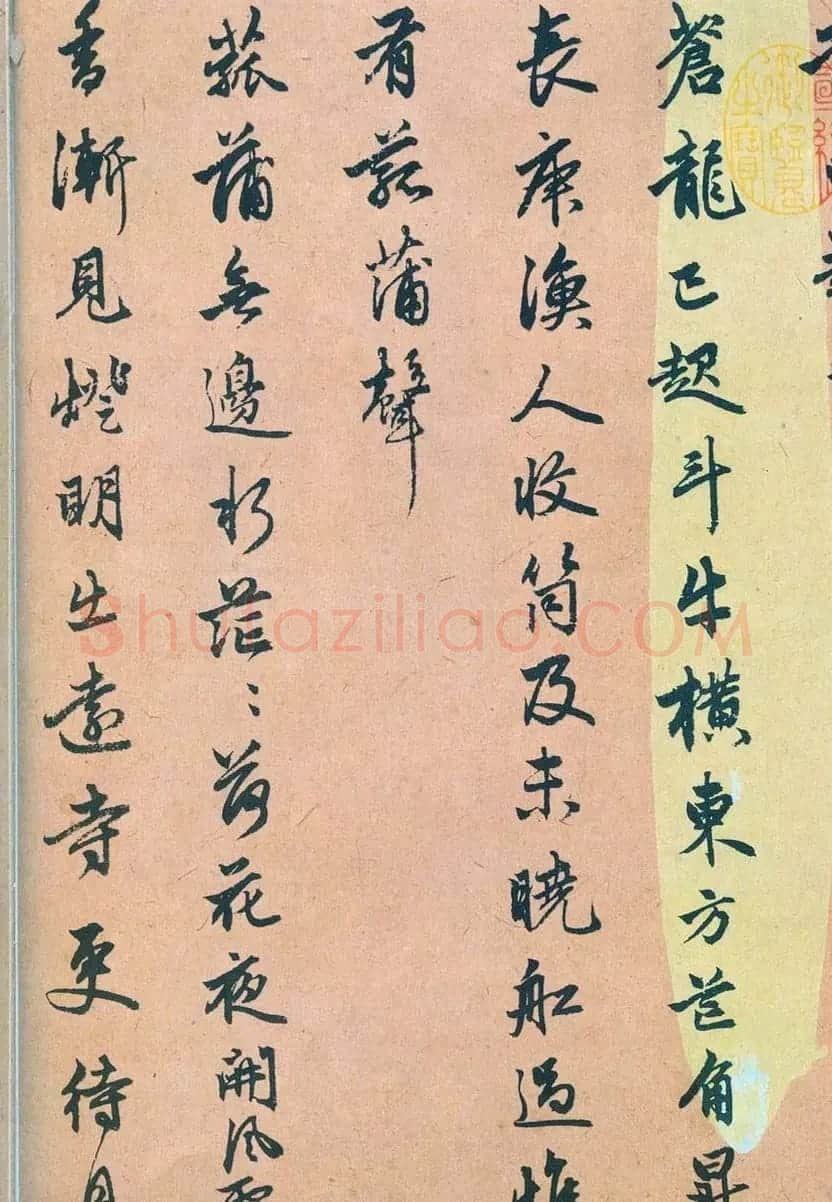 蒼龍已起斗牛橫東方芒角昇
長庚漁人收筒及未曉船過惟
有菰蒲聲
菰蒲無邊水茫〻荷花夜開風露
香漸見燈明出遠寺更待月
Shufaziliao.COM